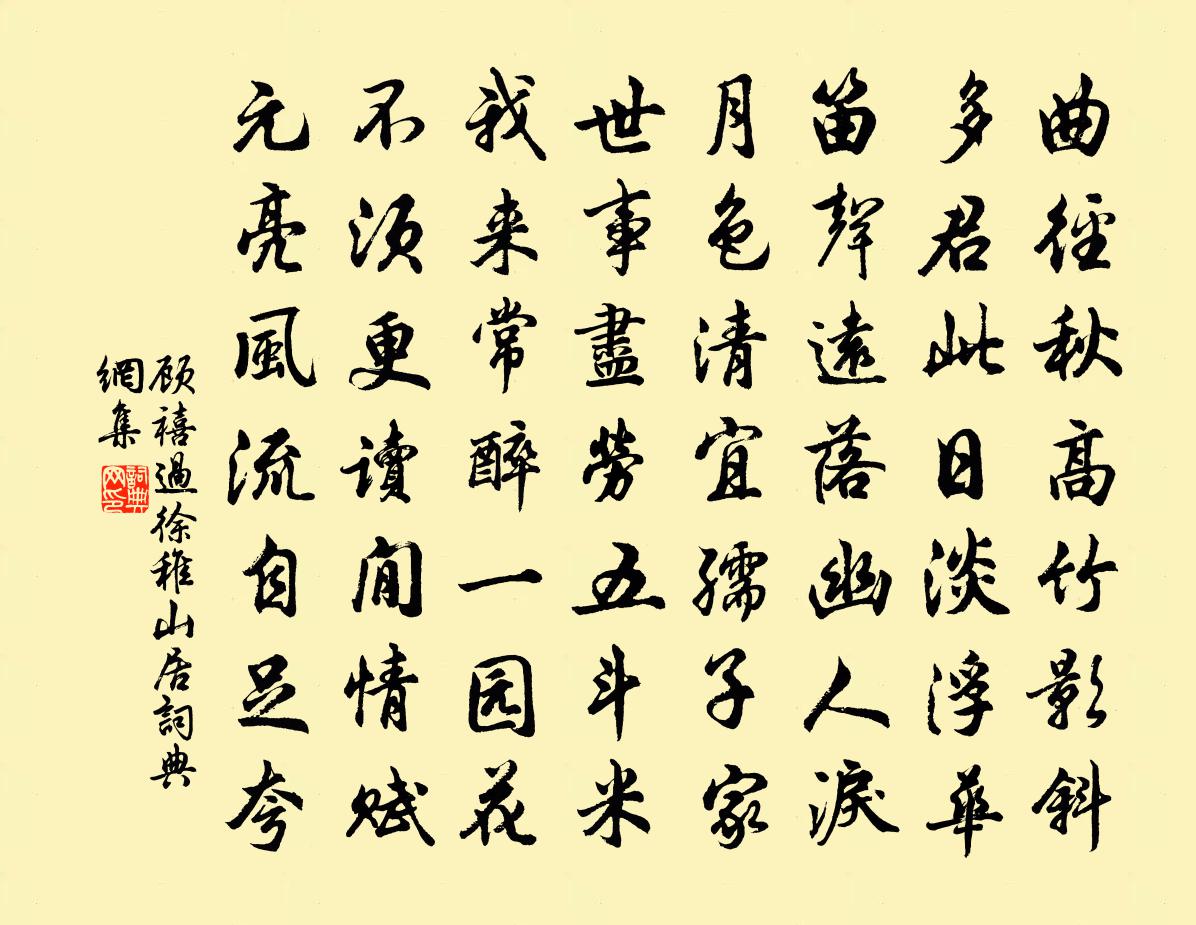 曲徑秋高竹影斜
多君此日淡浮華
笛聲遠落幽人淚
月色清宜孺子家
世事盡勞五斗米
我来常醉一园花
不須更讀閒情賦
元亮風流自足夸
顧禧過徐稚山居詞典
網集
詞典
网印